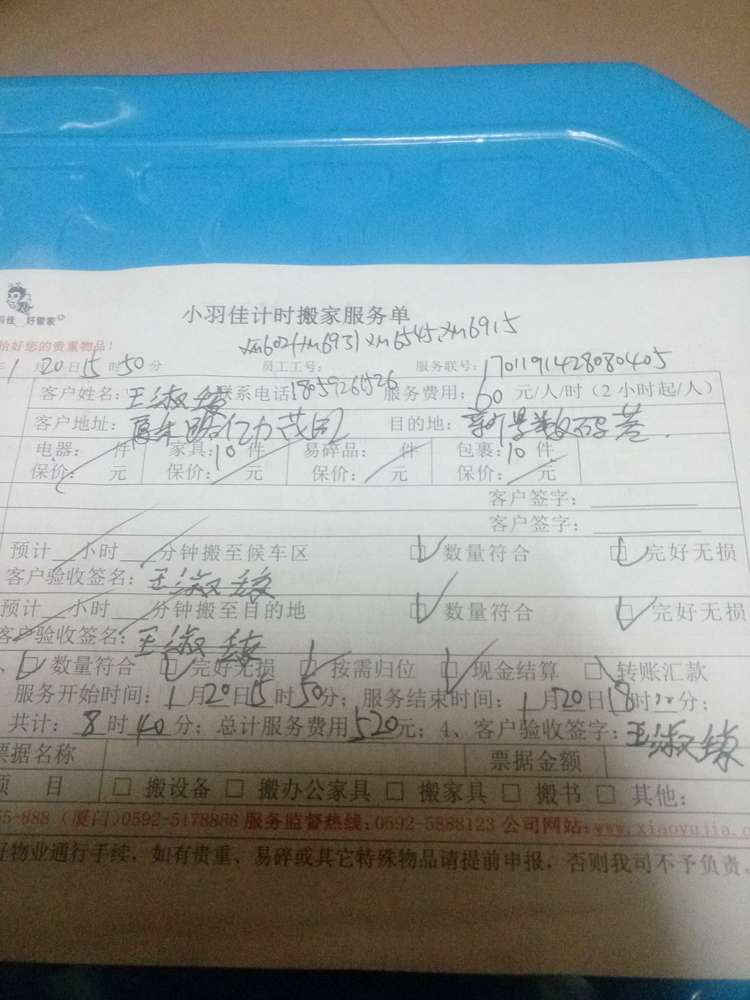 好管家
小羽佳计时搬家服务单
好您的贵重物品!
xm6915
1月20日15时50分 员工工号: 服务联号: 1701191428080405
客户姓名: 王淑 联系电话 服务费用: 60元/人/时(2小时起/人)
客户地址: 目的地:
电器: 件 家具: 10件 易碎品: 件 包裹: 10件
保价: 元 保价: 元 保价: 元 保价: 元
客户签字:
客户签字:
预计 小时 分钟搬至候车区 □数量符合 □完好无损
客户验收签名: 王淑
预计 小时 分钟搬至目的地 □数量符合 □完好无损
客户验收签名: 王淑
□数量符合 □完好无损 □按需归位 □现金结算 □转账汇款
服务开始时间: 1月20日15时50分; 服务结束时间: 1月20日18时 分;
共计: 8时40分; 总计服务费用520元; 4、客户验收签字: 王淑
票据名称 票据金额
项 目 □搬设备 □搬办公家具 □搬家具 □搬书 □其他:
-888 (厦门)0592-5178888 服务监督热线:0592-5888123 公司网站:www.xiaoyujia.c
好物业通行手续,如有贵重、易碎或其它特殊物品请提前申报,否则我司不予负责。